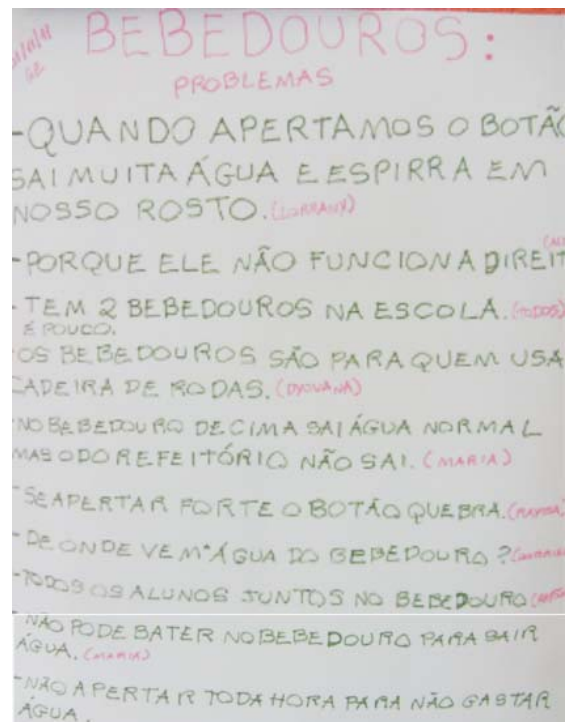 BEBEDOUROS:
PROBLEMAS
-QUANDO APERTAMOS O BOTÃO
SAI MUITA ÁGUA E ESPIRRA EM
NOSSO ROSTO. (LORRANY)
-PORQUE ELE NÃO FUNCIONA DIREIT
-TEM 2 BEBEDOUROS NA ESCOLA. (TODOS)
É POUCO.
OS BEBEDOUROS SÃO PARA QUEM USA
CADEIRA DE RODAS. (DYOVANA)
-NO BEBEDOURO DE CIMA SAI ÁGUA NORMAL
MAS O DO REFEITÓRIO NÃO SAI. (MARIA)
-SE APERTAR FORTE O BOTÃO QUEBRA.
-DE ONDE VEM A ÁGUA DO BEBEDOURO?
-TODOS OS ALUNOS JUNTOS NO BEBEDOURO
-NÃO PODE BATER NO BEBEDOURO PARA SAIR
ÁGUA. (MARIA)
-NÃO APERTAR TODA HORA PARA NÃO GASTAR
ÁGUA.